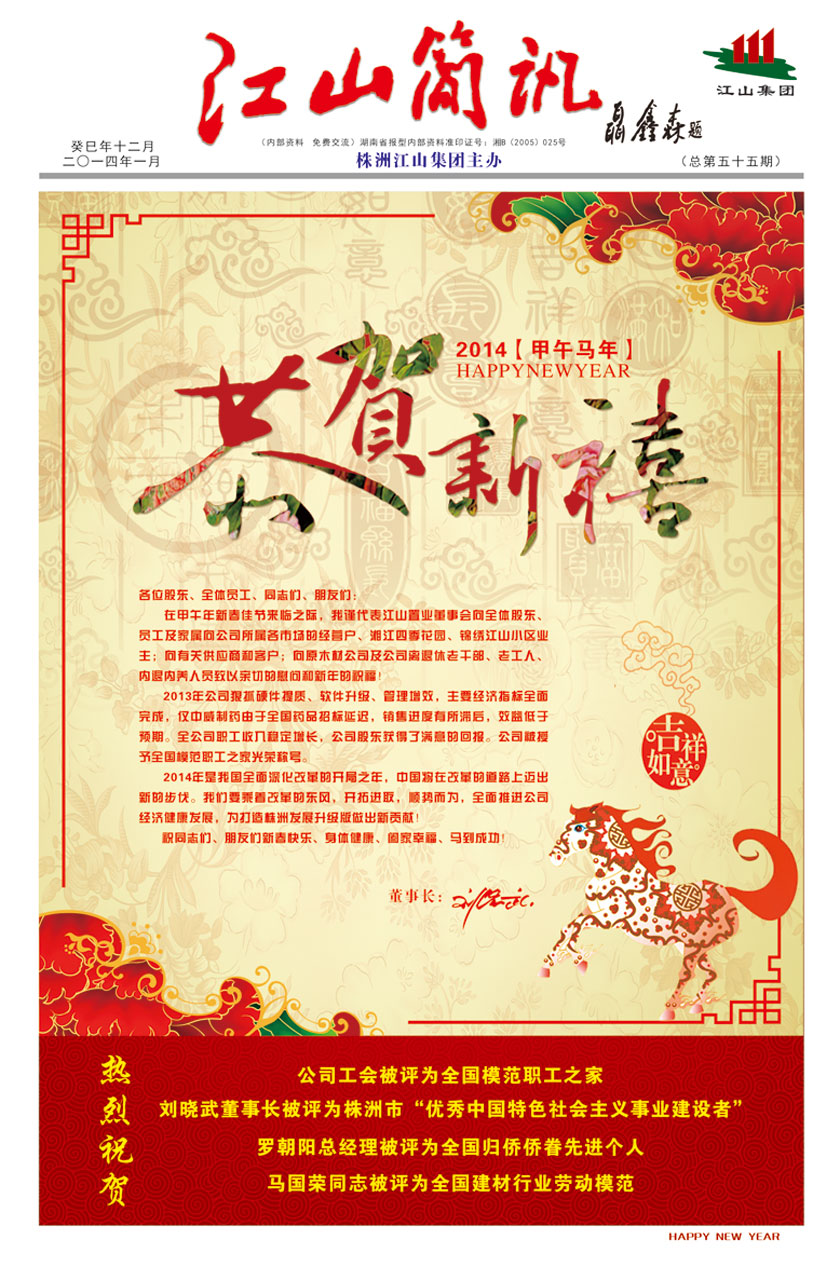 江山简讯
江山集团
聂鑫森题
癸巳年十二月
二〇一四年一月
（内部资料 免费交流）湖南省报型内部资料准印证号：湘B（2005）025号
株洲江山集团主办
（总第五十五期）
2014【甲午马年】
HAPPYNEWYEAR
恭贺新禧
各位股东、全体员工、同志们、朋友们：
在甲午年新春佳节来临之际，我谨代表江山置业董事会向全体股东、
员工及家属向公司所属各市场的经营户、湘江四季花园、锦绣江山小区业
主；向有关供应商和客户；向原木材公司及公司离退休老干部、老工人、
内退内养人员致以亲切的慰问和新年的祝福！
2013年公司狠抓硬件提质、软件升级、管理增效，主要经济指标全面
完成，仅中威制药由于全国药品招标延迟，销售进度有所滞后，效益低于
预期。全公司职工收入稳定增长，公司股东获得了满意的回报。公司被授
予全国模范职工之家光荣称号。
2014年是我国全面深化改革的开局之年，中国将在改革的道路上迈出
新的步伐。我们要乘着改革的东风，开拓进取，顺势而为，全面推进公司
经济健康发展，为打造株洲发展升级版做出新贡献！
祝同志们、朋友们新春快乐、身体健康、阖家幸福、马到成功！
吉祥
如意
董事长：
热烈祝贺
公司工会被评为全国模范职工之家
刘晓武董事长被评为株洲市“优秀中国特色社会主义事业建设者”
罗朝阳总经理被评为全国归侨侨眷先进个人
马国荣同志被评为全国建材行业劳动模范
HAPPY NEW YEAR